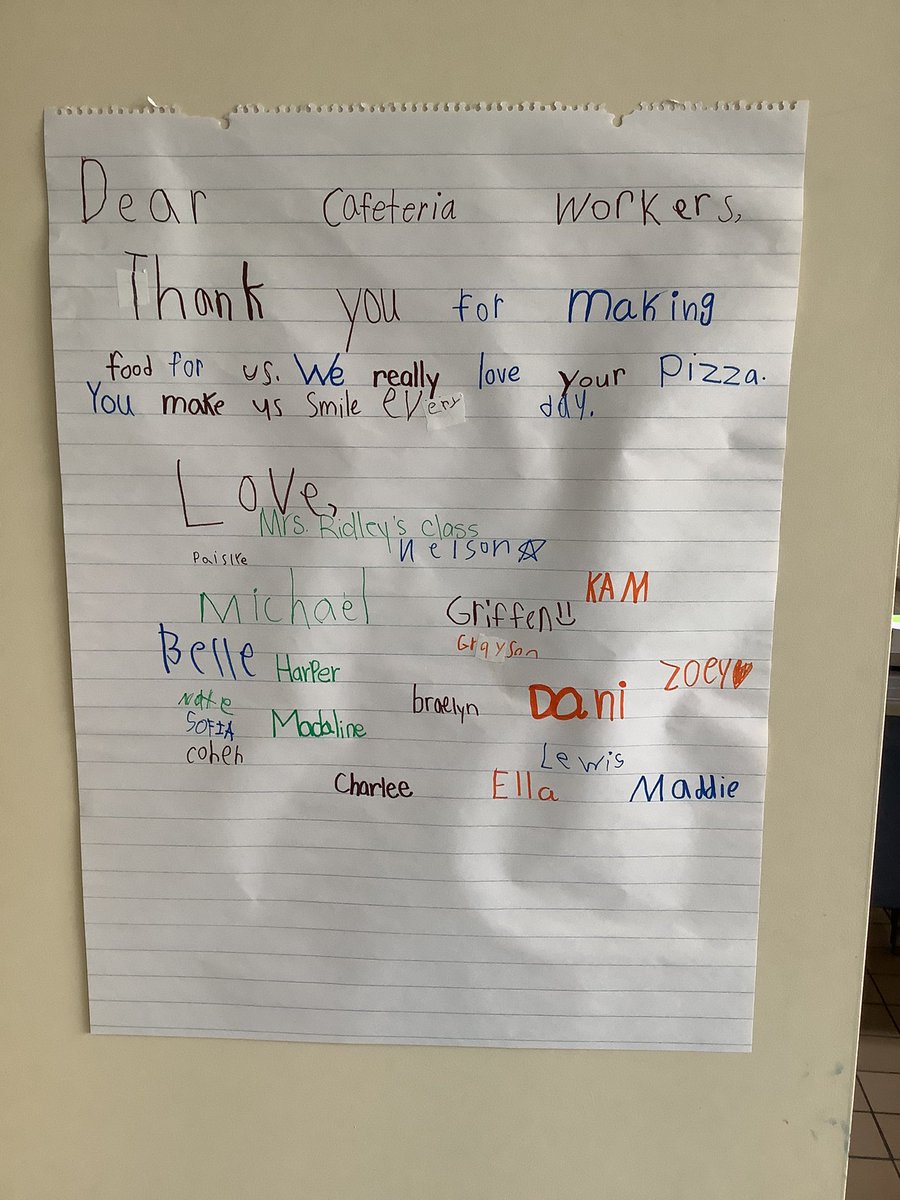 Dear Cafeteria Workers,
Thank you for making
food for us. We really love your Pizza.
You make us smile every day.
Love,
Mrs. Ridley's class
Nelson☆
Michael
KAM
Griffen
Grayson
Belle Harper
Zoey♥
Nate
braelyn Dani
SOFIA Madaline
cohen
Lewis
Charlee Ella Maddie